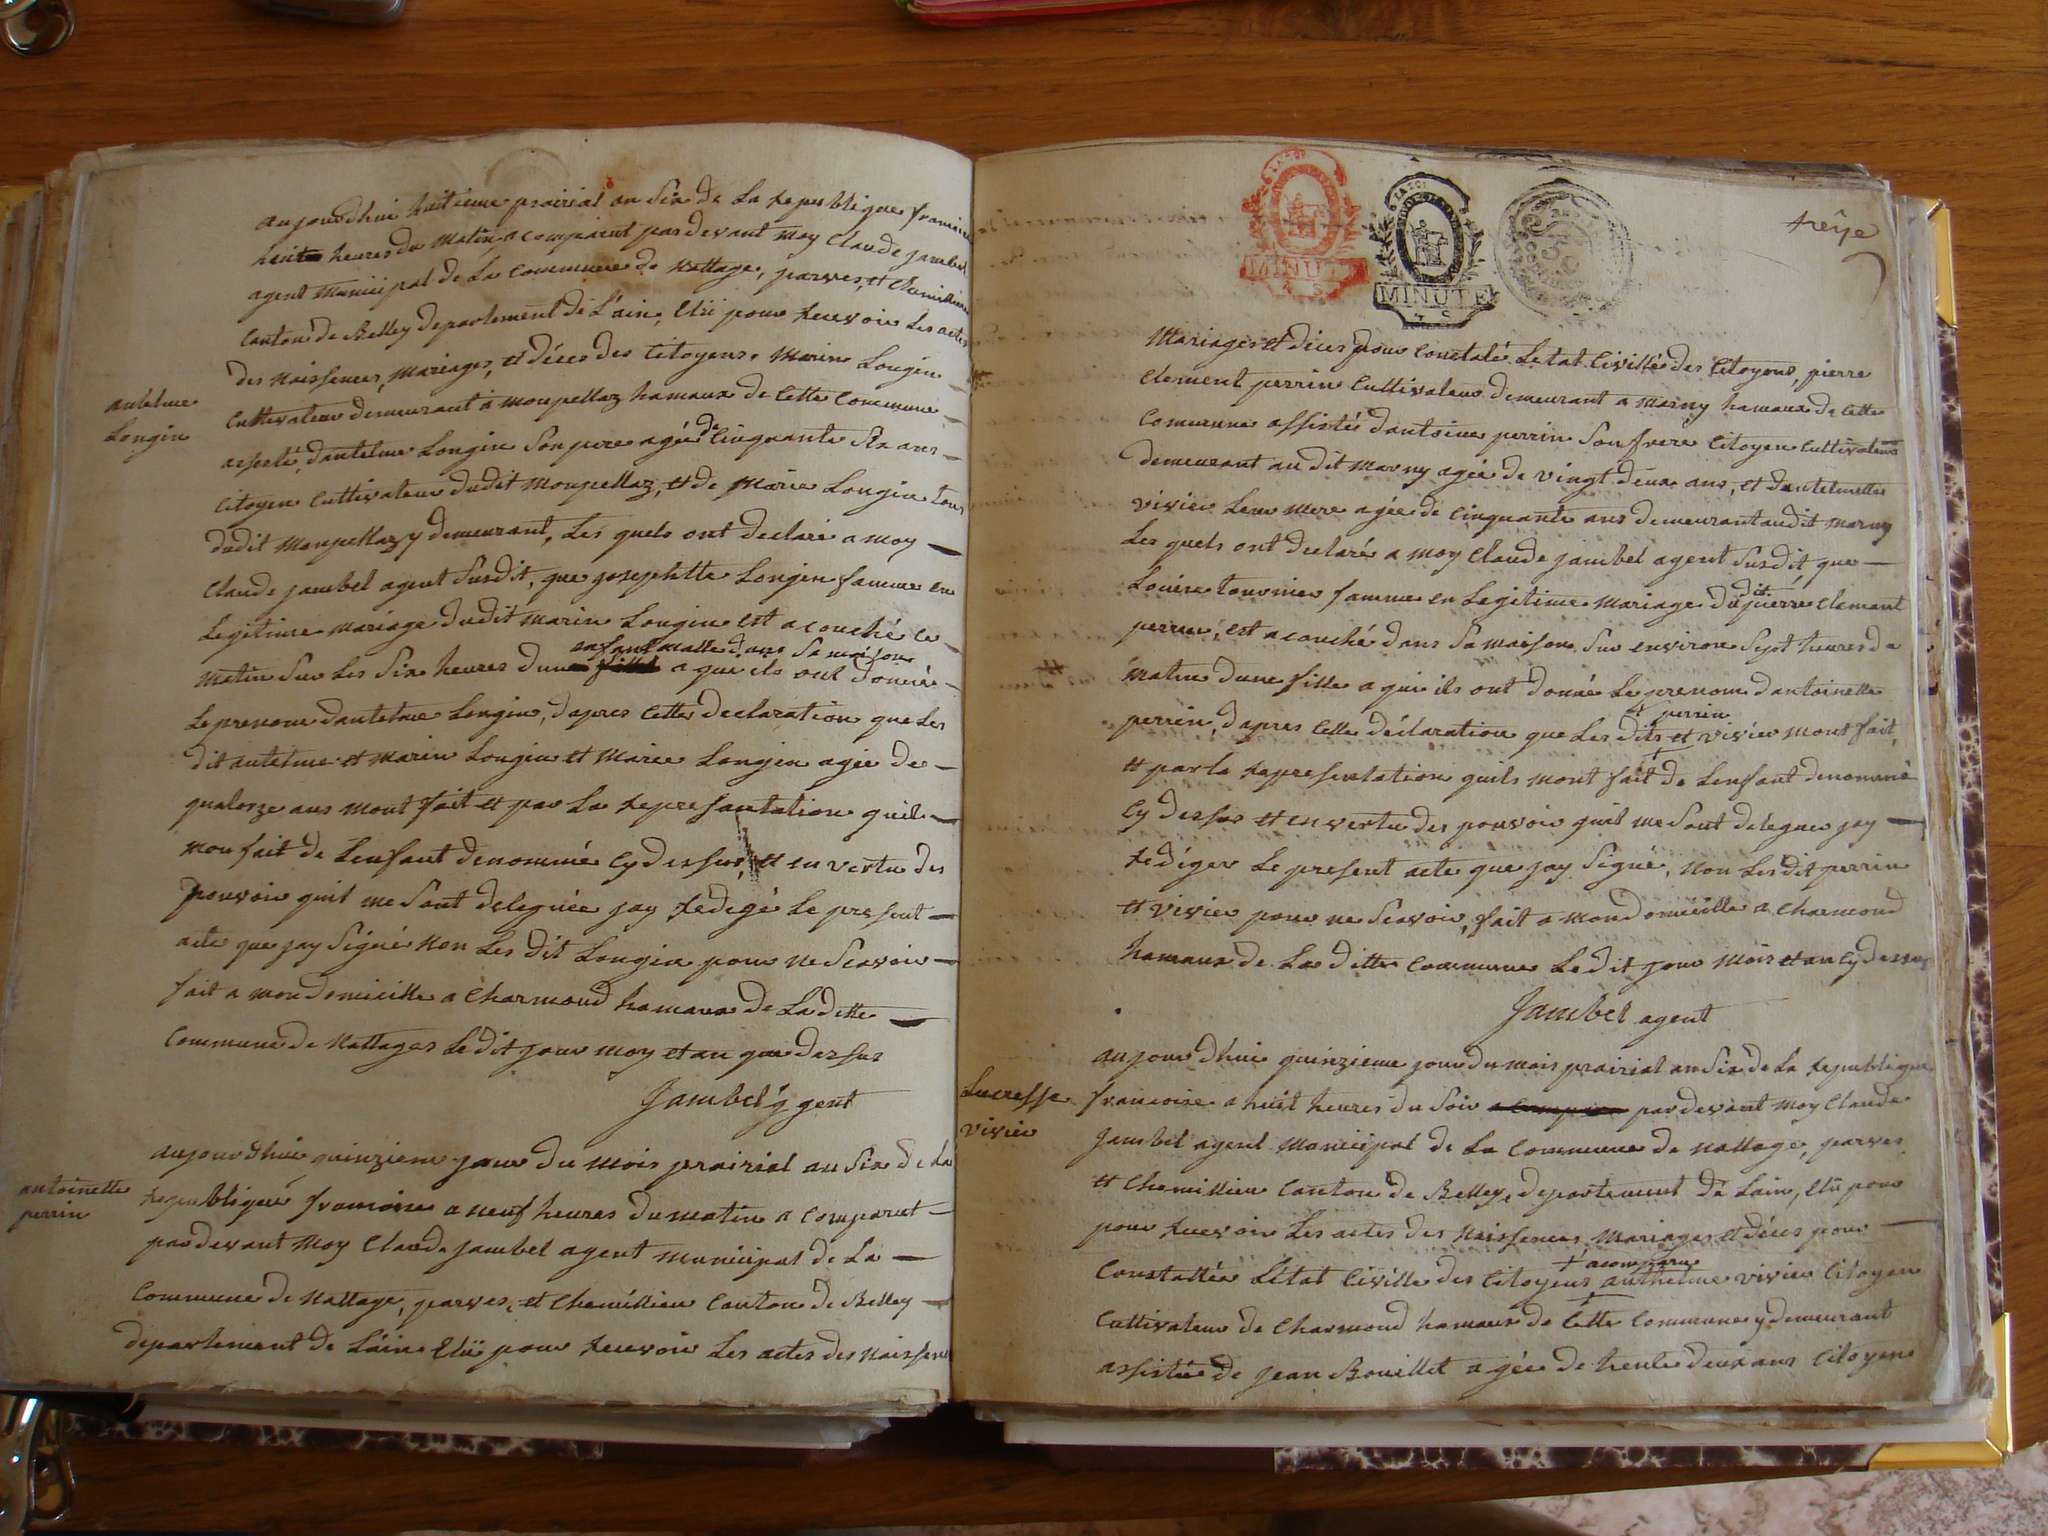 aujourdhui huitieme prairial an Six de La republique francoise
huit heures du Matin, a comparut pardevant Moy Claude jambel
agent Municipal de La Commune de Nattage, parves, et Chemillieu
Canton de Belley departement de L'ain, Elü pour recevoir Les actes
des Naissences, Mariages, et déces des Citoyens. Marin Longin
anthelme
Longin
Cultivateur demeurant a Monpellaz hamaux de Cette Commune
assisté, dantelme Longin Son pere agée de Cinquante Six ans
Citoyen Cultivateur dudit Monpellaz, et de Marie Longin tous
dudit Monpellaz y demeurant, Les quels ont declaré a moy
Claude jambel agent Susdit, que josephtte Longin famme en
Legitime mariage dudit Marin Longin est acouché ce
enfant malle dans Sa maison
matin Sur Les Six heures dune fille a qui ils ont donné
Le prenom dantelme Longin, dapres Cette declaration que Les
dit antelme et Marin Longin et Marie Longin agée de
quatorze ans mont fait et par La representation quil
mon fait de Lenfant denommé Cy dessus, et en vertu des
pouvoir quil me Sont deleguée jay redegé Le present
acte que jay Signé Non Les dit Longin pour ne Scavoir
fait a mon domicille a Charmond hamaux de La ditte
Commune de Nattages Ledit jour moy et an que dessus
Jambel agent
antoinette
perrin
aujourdhui quinzieme jour du mois prairial an Six de La
republique francoise a neuf heures du matin a Comparut
pardevant Moy Claude jambel agent municipal de La
Commune de Nattage, parves, et Chemillieu Canton de Belley
departement de Lain Elü pour recevoir Les actes des Naissences
treize
MINUTE
MINUTE
Mariages et déces pour Constaté Letat Civillé des Citoyens, pierre
Clement perrin Cultivateur demeurant a Marny hamaux de Cette
Commune assistés dantoine perrin Son frere Citoyen Cultivateur
demeurant au dit Marny agée de vingt deux ans, et dantelmette
vivier Leur Mere agée de Cinquante ans demeurant audit marny
Les quels ont declaré a moy Claude jambel agent Susdit, que
Louise tournier famme en Legitime Mariage du dit pierre Clement
perrin, est acouché dans Sa maison Sur environ Sept heures du
matin dune fille a qui ils ont donné Le prenom dantoinette
perrin
perrin, dapres Cette déclaration que Les dits et vivier mont fait,
et par la representation quils mont fait de Lenfant denommé
Cy dessus et en vertu des pouvoir quil me Sont delegues jay
rediger Le present acte que jay Signé, Non Lesdit perrin
et vivier pour ne Scavoir, fait a mon domicille a Charmond
hamaux de La ditte Commune Le dit jour mois et an Cy dessus
Jambel agent
Lucresse
vivier
aujourdhui quinzieme jour du mois prairial an Six de La republique
francoise a huit heures du Soir pardevant moy Claude
Jambel agent Municipal de La Commune de Nattage, parves
et Chemillieu Canton de Belley, departement de Lain, Elü pour
pour recevoir Les actes des Naissences Mariages et déces pour
+ acomparu
Constattée Létat Civille des Citoyens anthelme vivier Citoyen
Cultivateur de Charmond hamaux de Cette Commune y demeurant
assistée de jean Bouillet agée de trente deux ans Citoyen